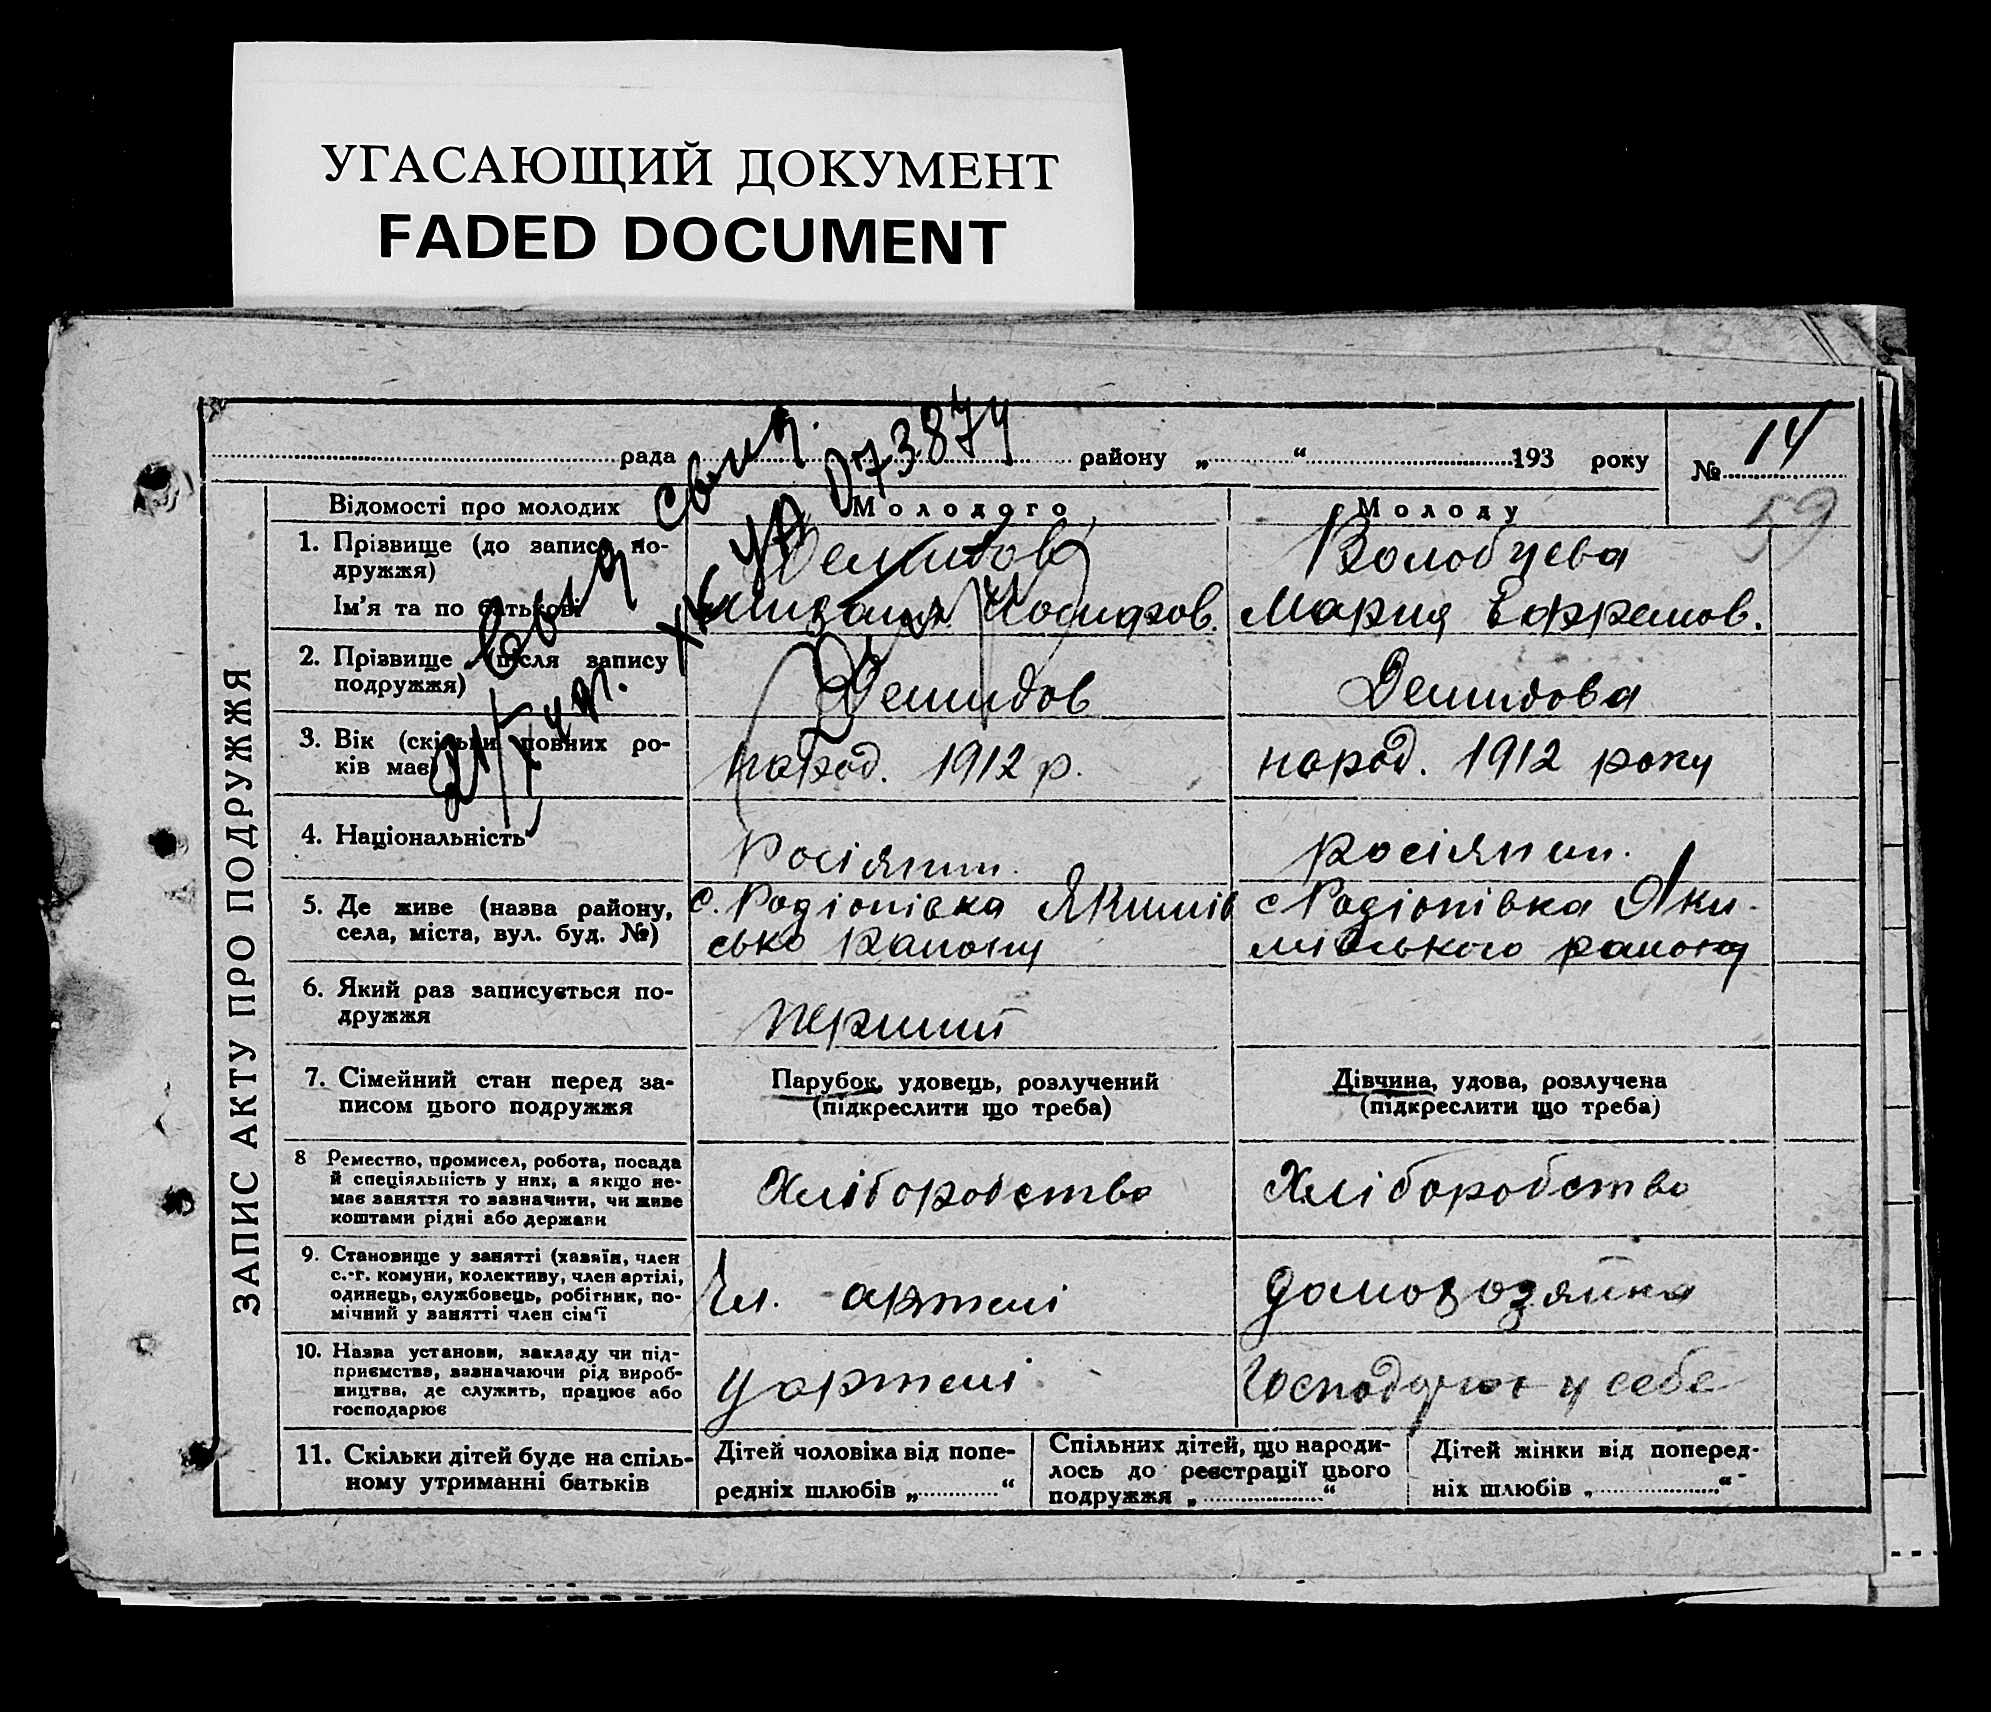 УГАСАЮЩИЙ ДОКУМЕНТ
FADED DOCUMENT
рада району „ “ 193 року № 14
59
ЗАПИС АКТУ ПРО ПОДРУЖЖЯ
Відомості про молодих
Молодого
Молоду
1. Прізвище (до запису по-
дружжя)
Ім'я та по батькові
Демидов
Волобуева
Мария Ефремов.
073874
2. Прізвище (після запису
подружжя)
Демидов
Демидова
3. Вік (скільки повних ро-
ків має)
народ. 1912 р.
народ. 1912 року
4. Національність
Росіянин.
росіянин.
5. Де живе (назва району,
села, міста, вул. буд. №)
с. Родіонівка Якимів
сько району
с Родіонівка Яки-
мівського району
6. Який раз записується по-
дружжя
перший
7. Сімейний стан перед за-
писом цього подружжя
Парубок, удовець, розлучений
(підкреслити що треба)
Дівчина, удова, розлучена
(підкреслити що треба)
8 Ремество, промисел, робота, посада
й спеціяльність у них, а якщо не-
має заняття то зазначити, чи живе
коштами рідні або держави
Хліборобство
Хліборобство
9. Становище у занятті (хазяїн, член
с.-г. комуни, колективу, член артілі,
одинець, службовець, робітник, по-
мічний у занятті член сім'ї
Чл. артелі
домохозяйка
10. Назва установи, закладу чи під-
приємства, зазначаючи рід вироб-
ництва, де служить, працює або
господарює
у артелі
у себе
11. Скільки дітей буде на спіль-
ному утриманні батьків
Дітей чоловіка від попе-
редніх шлюбів „ “
Спільних дітей, що народи-
лось до реєстрації цього
подружжя „ “
Дітей жінки від поперед-
ніх шлюбів „ “